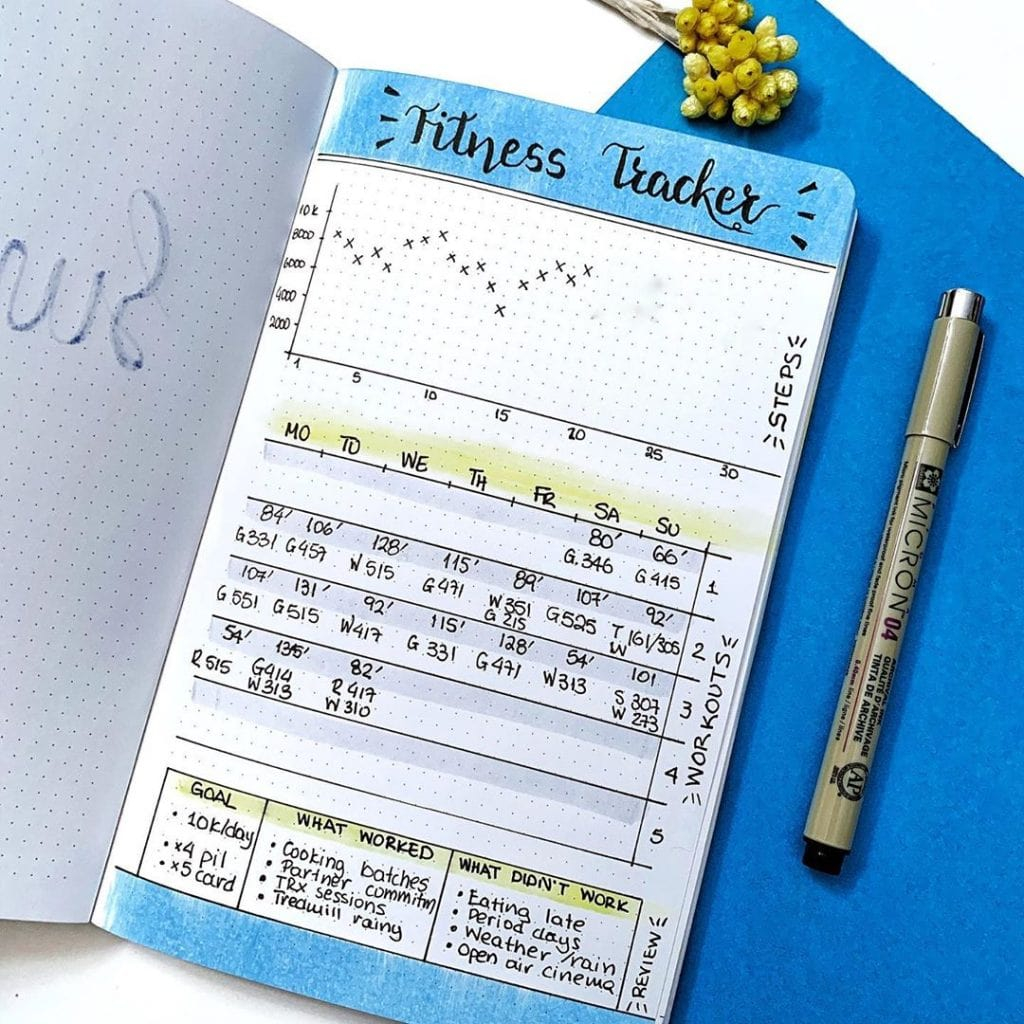 Fitness Tracker
10K
8000
6000
4000
2000
1 5 10 15 20 25 30
STEPS
MO TD WE TH FR SA SU
80' 66'
G.346 G415
1
84' 106' 128' 115' 89' 107' 92'
G331 G457 W515 G471 W351 G525 T 161/305
G 215 W
2
107' 131' 92' 115' 128' 54' 101
G551 G515 W417 G.331 G471 W313 S 307
W 273
3
54' 135' 82'
R515 G414 R417
W313 W310
4
5
WORKOUTS
GOAL
• 10K/day
• x4 pil
• x5 card
WHAT WORKED
• Cooking batches
• Partner commitm
• TRX sessions
• Tredmill rainy
WHAT DIDN'T WORK
• Eating late
• Period days
• Weather/rain
• Open air cinema
REVIEW
MICRON 04
ARCHIVAL INK
QUALITÉ D'ARCHIVAGE
TINTA DE ARCHIVE
AP